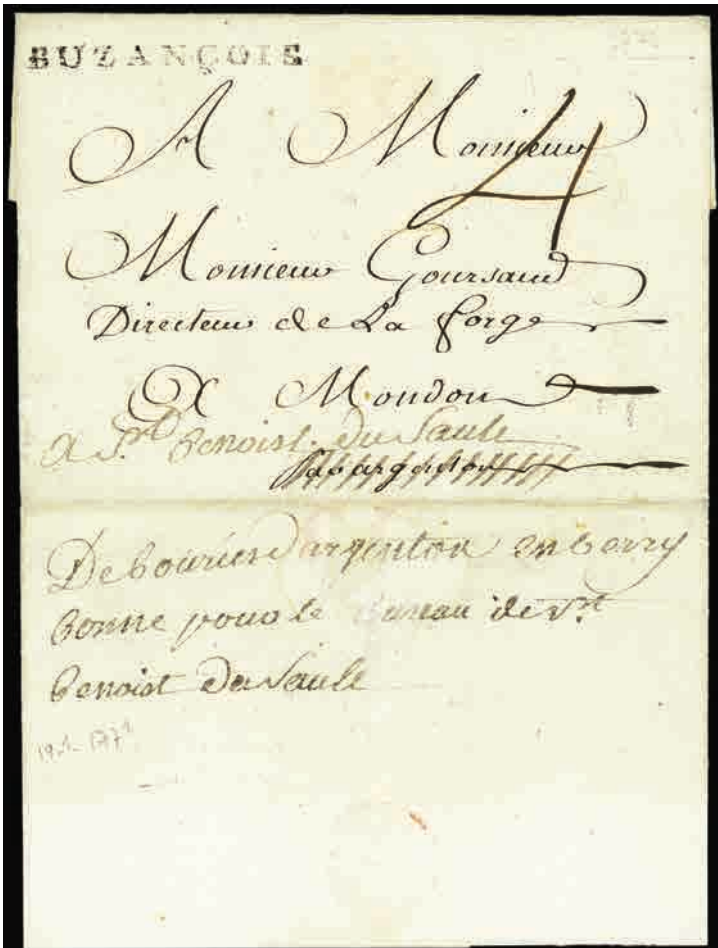 BUZANÇOIS
A Monsieur
4
Monsieur Goursaud
Directeur de La forge
A Mondon
a St Benoist du Sault
par argenton
Debourse D'argenton en berry
bonne pour le Bureau de St
Benoist Du Sault